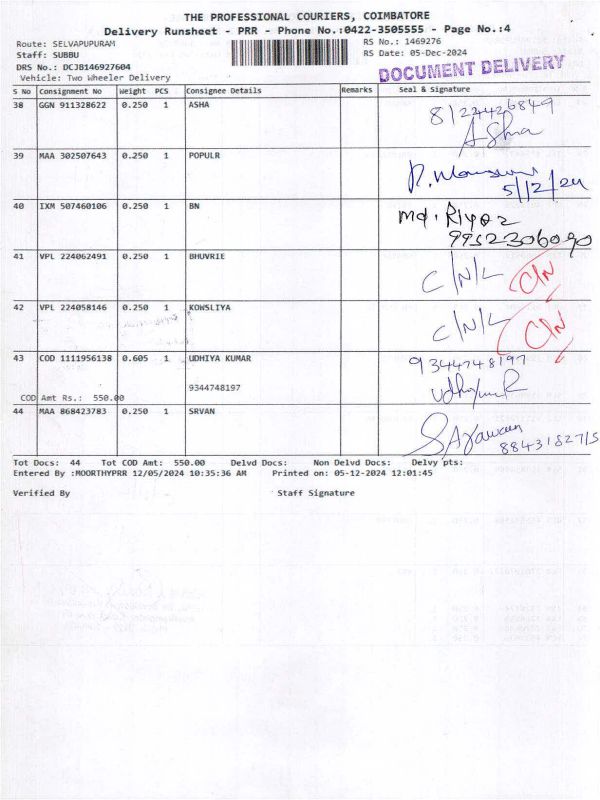 THE PROFESSIONAL COURIERS, COIMBATORE
Delivery Runsheet - PRR - Phone No.:0422-3505555 - Page No.:4
Route: SELVAPUPURAM RS No.: 1469276
Staff: SUBBU RS Date: 05-Dec-2024
DRS No.: DCJB146927604
Vehicle: Two Wheeler Delivery
DOCUMENT DELIVERY
S No Consignment No Weight PCS Consignee Details Remarks Seal & Signature
38 GGN 911328622 0.250 1 ASHA
8122426849
Asha
39 MAA 302507643 0.250 1 POPULR
5/12/24
40 IXM 507460106 0.250 1 BN
Md. Riyaz
9952306090
41 VPL 224062491 0.250 1 BHUVRIE
C/N/L C/N
42 VPL 224058146 0.250 1 KOWSLIYA
C/N/L C/N
43 COD 1111956138 0.605 1 UDHIYA KUMAR
9344748197
9344748197
COD Amt Rs.: 550.00
44 MAA 868423783 0.250 1 SRVAN
Tot Docs: 44 Tot COD Amt: 550.00 Delvd Docs: Non Delvd Docs: Delvy pts:
Entered By :MOORTHYPRR 12/05/2024 10:35:36 AM Printed on: 05-12-2024 12:01:45
Verified By Staff Signature